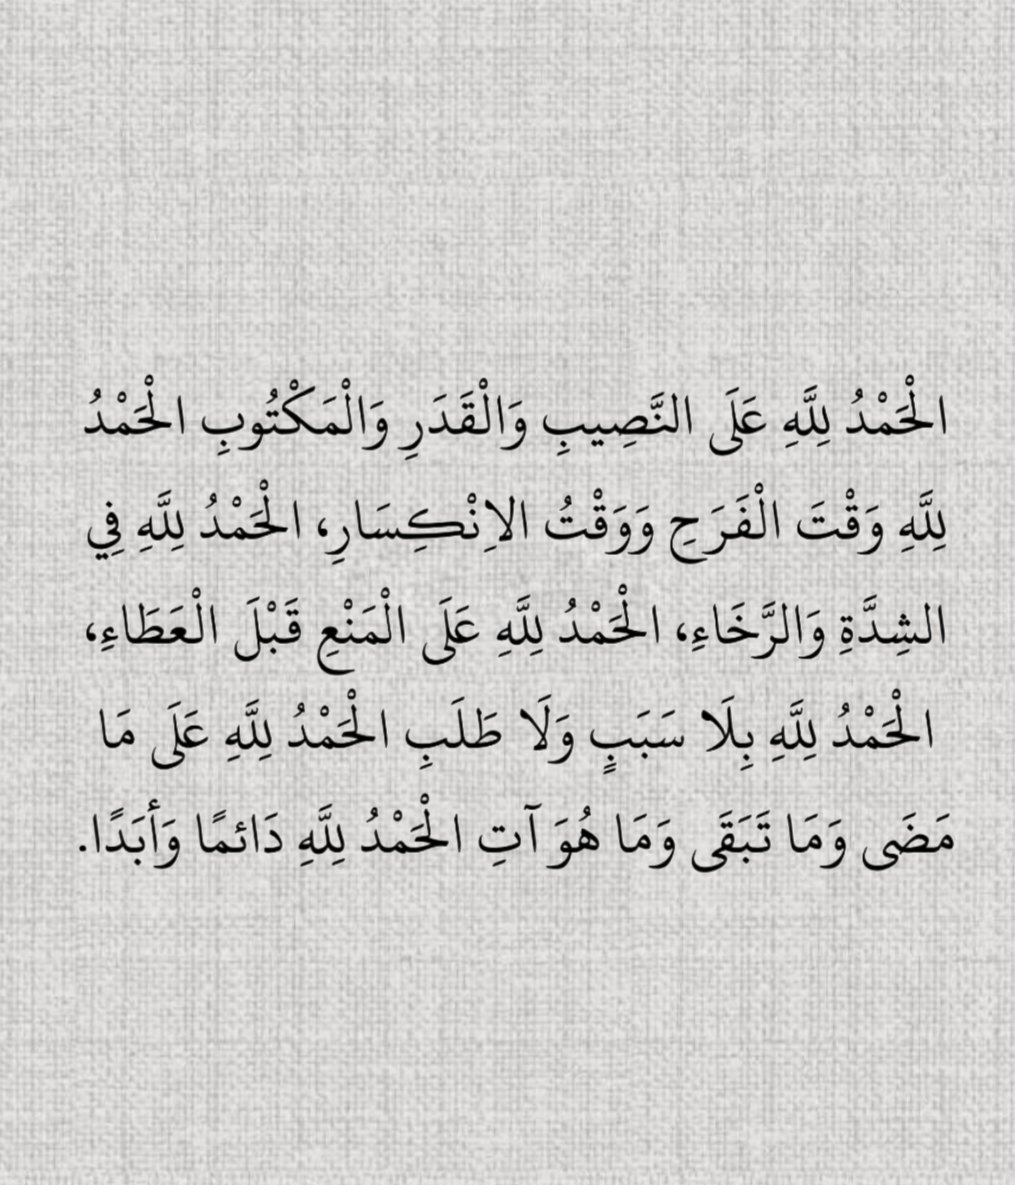 الْحَمْدُ لِلَّهِ عَلَى النَّصِيبِ وَالْقَدَرِ وَالْمَكْتُوبِ الْحَمْدُ
لِلَّهِ وَقْتَ الْفَرَحِ وَوَقْتُ الاِنْكِسَارِ، الْحَمْدُ لِلَّهِ فِي
الشِدَّةِ وَالرَّخَاءِ، الْحَمْدُ لِلَّهِ عَلَى الْمَنْعِ قَبْلَ الْعَطَاءِ،
الْحَمْدُ لِلَّهِ بِلَا سَبَبٍ وَلَا طَلَبِ الْحَمْدُ لِلَّهِ عَلَى مَا
مَضَى وَمَا تَبَقَى وَمَا هُوَ آتِ الْحَمْدُ لِلَّهِ دَائمًا وَأَبَدًا.